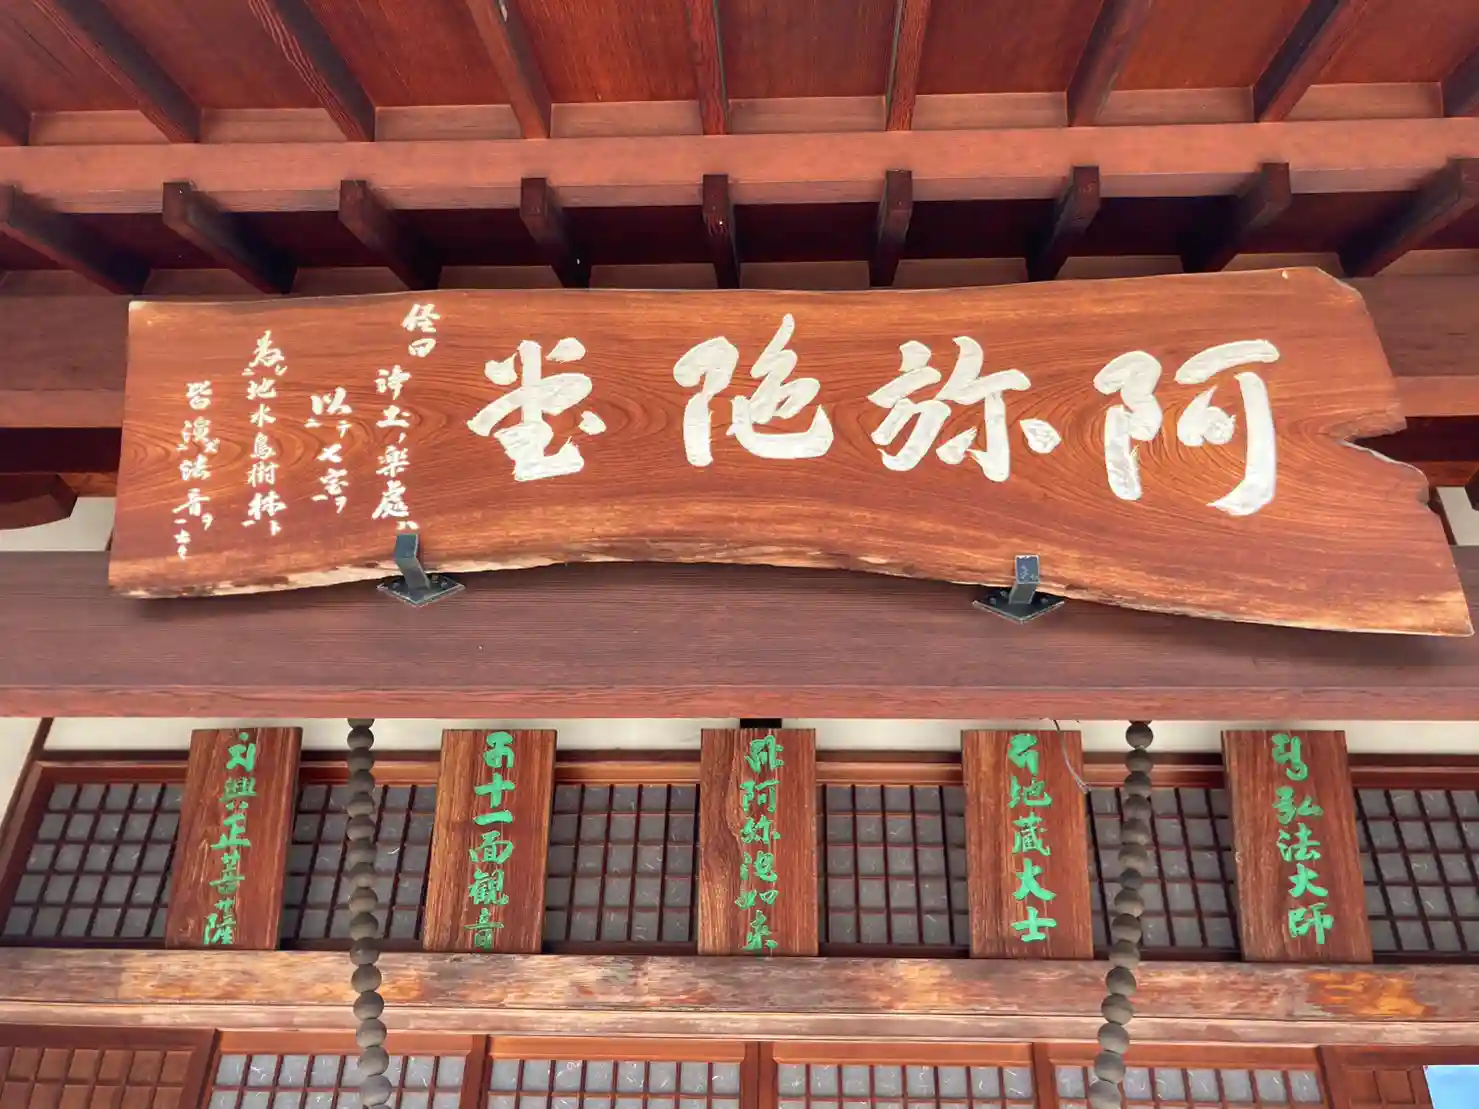 阿弥陀堂
経曰
浄土ノ楽處ハ
以テ七宝ヲ
為シ地水鳥樹林ト
皆演法音ヲ
弘法大師
地蔵大士
阿弥陀如来
十一面観音
興正菩薩